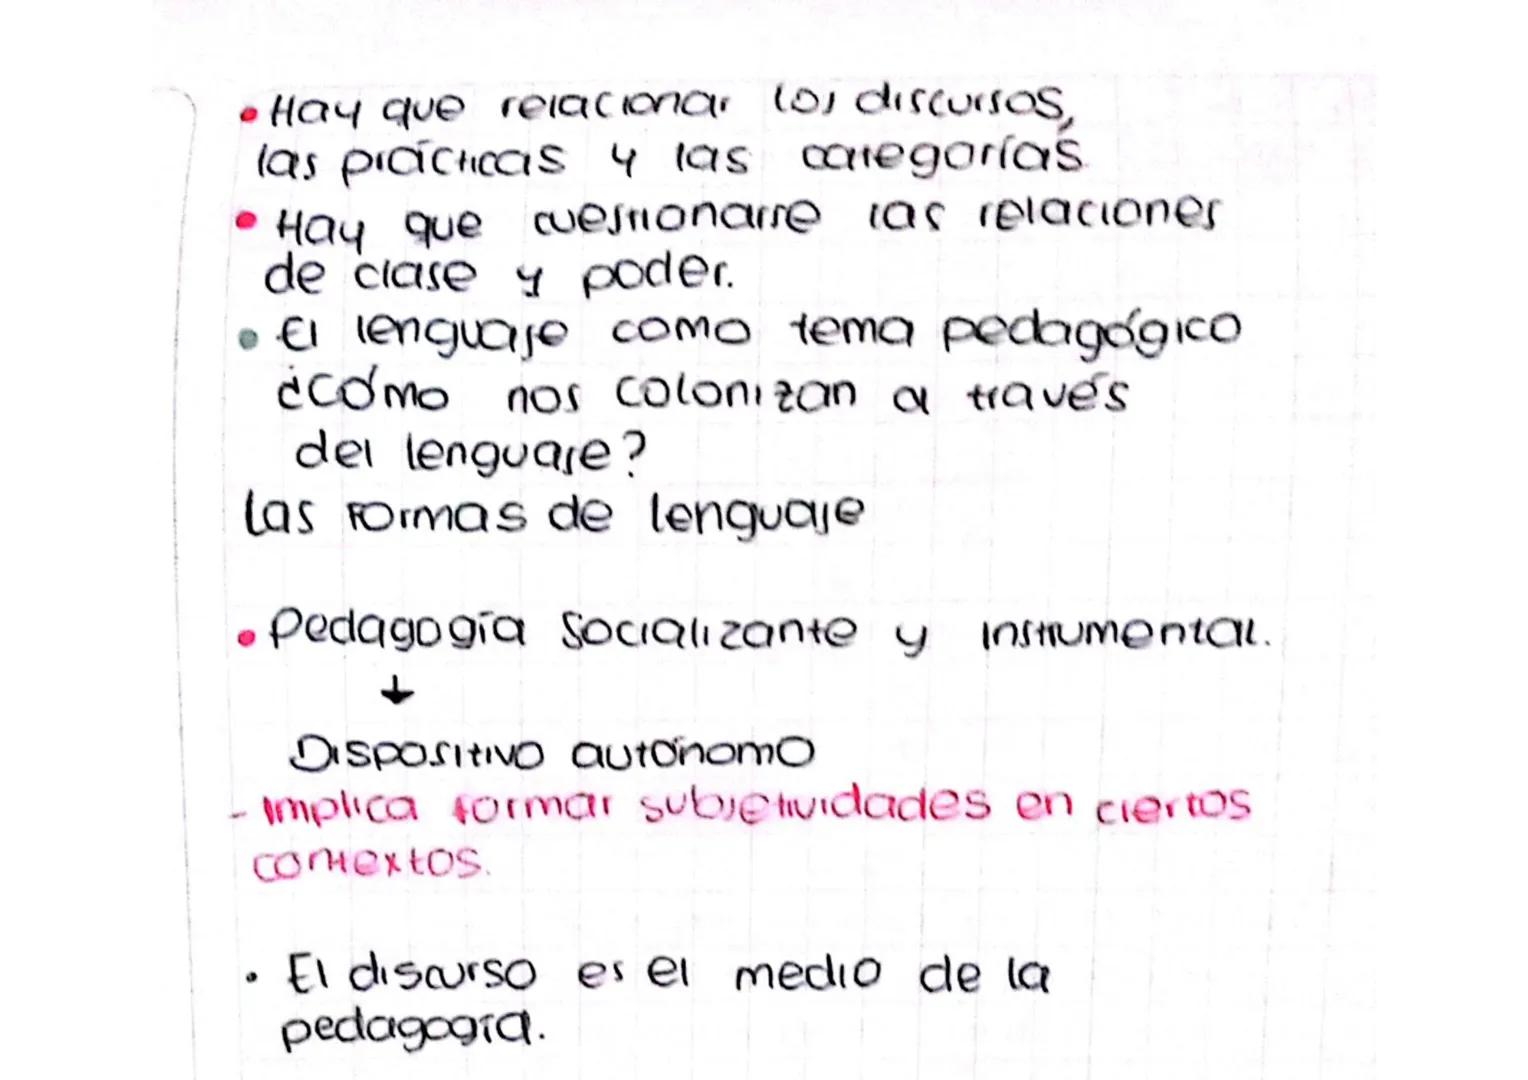 • Hay que relacionar los discursos,
las prácticas y las categorías.
• Hay que cuestionarse las relaciones
de clase y poder.
• El lenguaje como tema pedagógico
¿Cómo nos colonizan a través
del lenguaje?
Las formas de lenguaje
• Pedagogía Socializante y instrumental.
↓
Dispositivo autónomo
- Implica formar subjetividades en ciertos
contextos.
• El discurso es el medio de la
pedagogía.